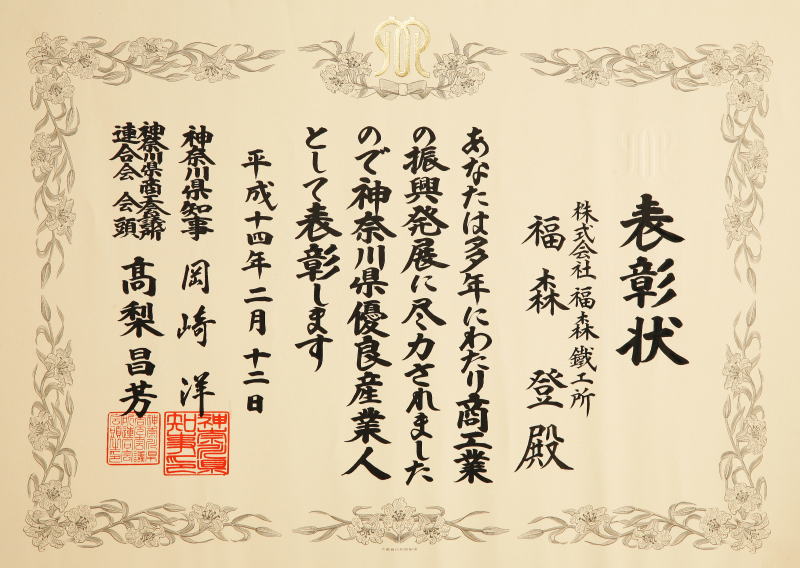 表彰状
株式会社 福森鐵工所
福森 登 殿
あなたは多年にわたり商工業
の振興発展に尽力されました
ので神奈川県優良産業人
として表彰します
平成十四年二月十二日
神奈川県知事 岡崎 洋
神奈川県商工会議所
連合会 会頭 髙梨昌芳